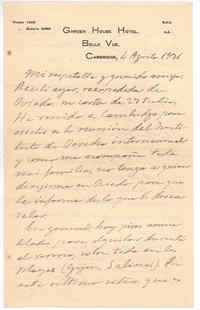 GARDEN HOUSE HOTEL,
BELLE VUE,
CAMBRIDGE, 6 Agosto 1931
Mi respetable y querido amigo:
Recibí ayer, reexpedida de
Oviedo, su carta de 27 Julio.
He venido a Cambridge para
asistir a la reunión del Insti-
tuto de Derecho internacional
y como me acompaña toda
mi familia, no tengo a quien
dirigirme en Oviedo, para que
le informe de lo que V. desea
saber.
En general hay pisos amue-
blados, para alquilar durante
el verano, sobre todo en las
playas (Gijón, Salinas). En
este último sitio, que